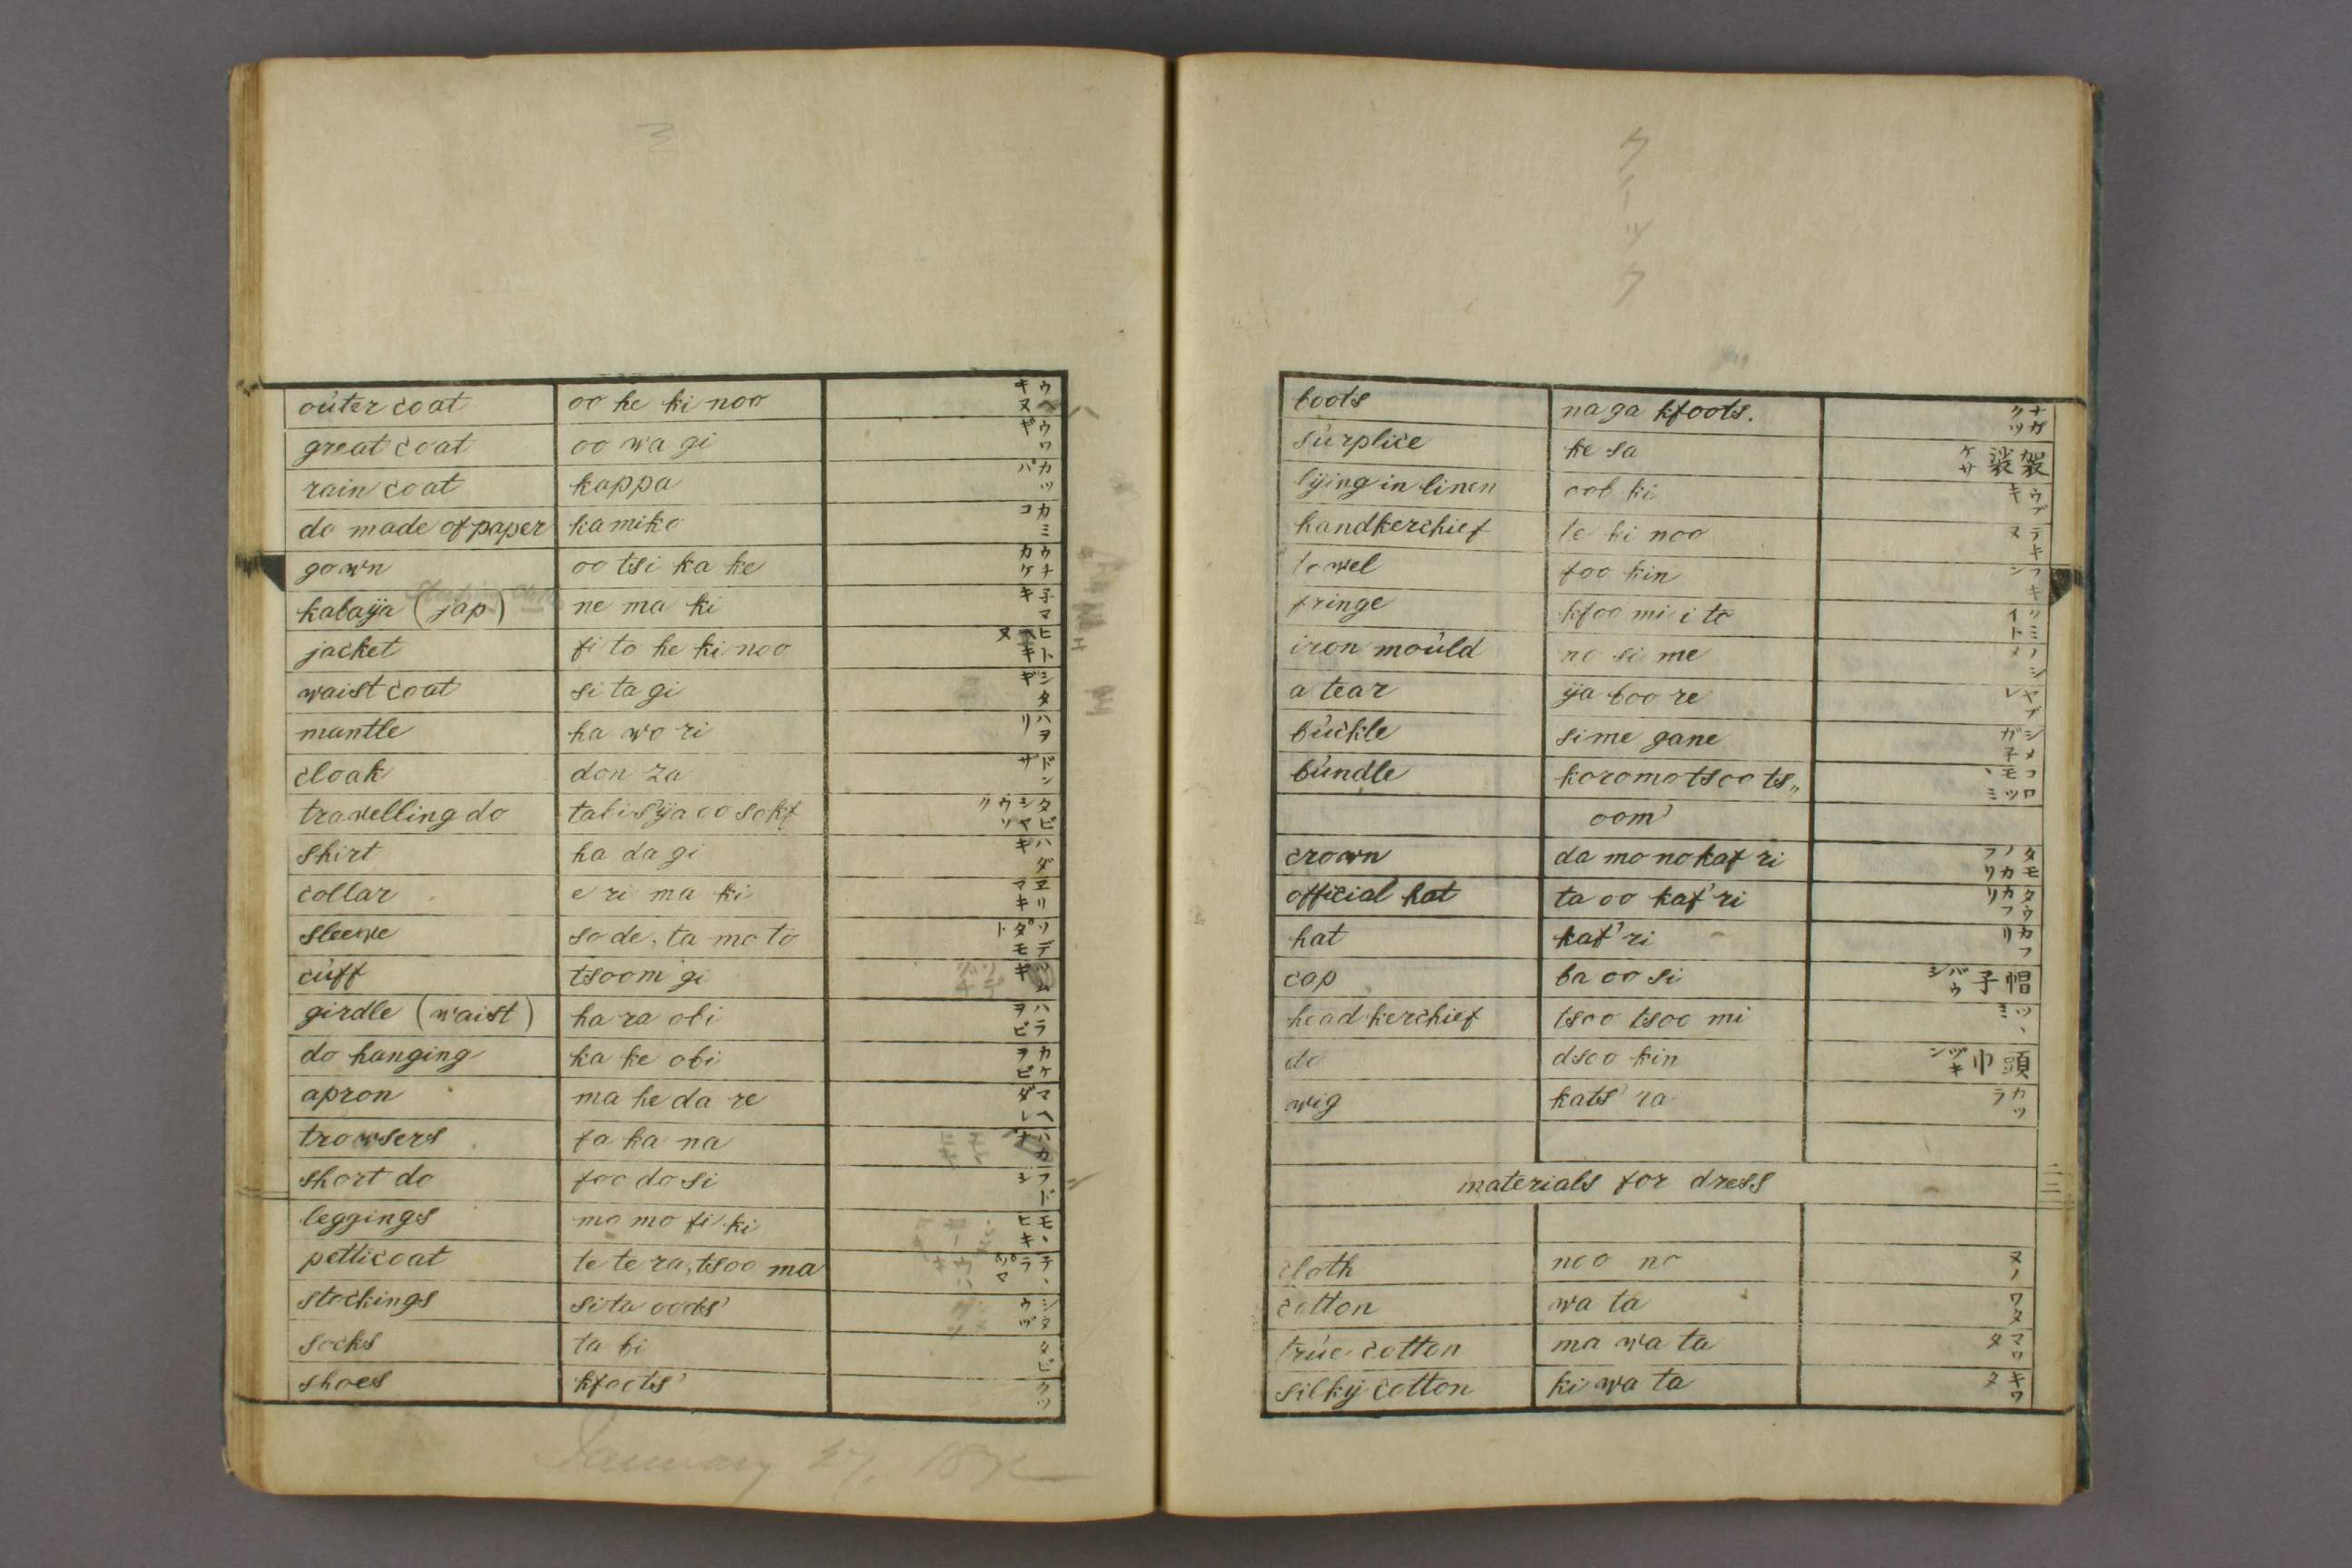 oúter coat oo he ki noo ウヘキヌ
great coat oo wa gi ウワギ
rain coat kappa カッパ
do made of paper kamiko カミコ
gown oo tsi ka ke ウチカケ
kabaÿa (jap) ne ma ki 子マキ
jacket fi to he ki noo ヒトヘキヌ
waist coat si ta gi シタギ
mantle ha wo ri ハヲリ
cloak don za ドンザ
travelling do tabi s'ÿa oo sokf タビシヤウソク
shirt ha da gi ハダギ
collar e ri ma ki ヱリマキ
sleeve so de, ta mo to ソデタモト
cúff tsoom gi ツムギ
girdle (waist) ha ra obi ハラヲビ
do hanging ka ke obi カケヲビ
apron ma he da re マヘダレ
trowsers fa ka na
short do foo do si フドシ
leggings mo mo fi ki モヽヒキ
petticoat te te ra, tsoo ma テヽラツマ
stockings sita oods' シタウヅ
socks ta bi タビ
shoes kfoots' クツ
January 27, 18
クイック
boots na ga kfoots. ナガクツ
súrplice ke sa 袈裟 ケサ
lÿing in linen oob ki ウブキ
handkerchief te ki noo テキヌ
towel foo kin フキン
fringe kfoo mi i to クミイト
iron moúld no si me ノシメ
a tear ÿa boo re ヤブレ
búckle sime gane シメガ子
búndle koromo tsoo ts„ コロモツヽミ
oom'
crown da mo no kaf ri タモノカフリ
official hat ta oo kaf'ri タウカフリ
hat kaf'ri カフリ
cap ba oo si 帽子 バウシ
head kerchief tsoo tsoo mi ツヽミ
do dsoo kin 頭巾 ヅキン
wig kats' ra カツラ
materials for dress
cloth noo no ヌノ
cotton wa ta ワタ
trúe cotton ma wa ta マワタ
silkÿ cotton ki wa ta キワタ